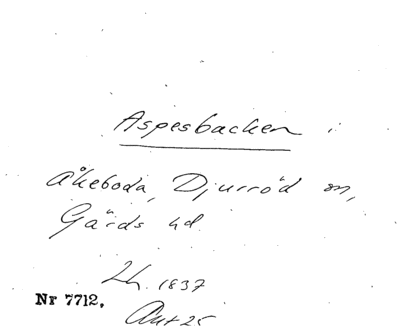 Aspesbacken i
Åkeboda, Djurröd sn,
Gärds hd
Lh. 1837
Nr 7712.
Akt 25